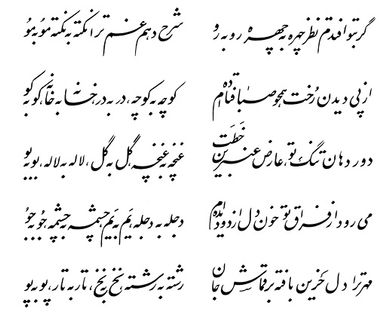 گر بتو افتدم نظر چهره به چهره رو به رو شرح دهم غم ترا نکته به نکته مو به مو
از پی دیدن رخت همچو صبا فتاده ام کوچه به کوچه، در به در، خانه به خانه، کو به کو
دور دهان تنگ تو، عارض عنبرین خطت غنچه به غنچه، گل به گل، لاله به لاله، بو به بو
می رود از فراق تو خون دل از دو دیده ام دجله به دجله، یم به یم، چشمه به چشمه، جو به جو
مهر ترا دل حزین بافته بر قماش جان رشته به رشته، نخ به نخ، تار به تار، پو به پو